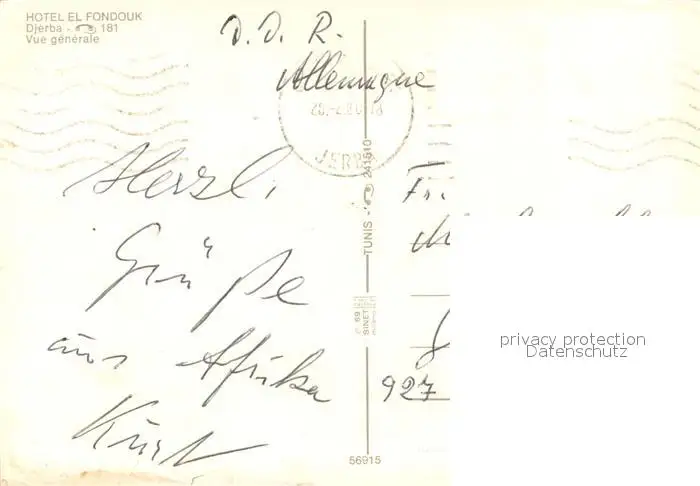 HOTEL EL FONDOUK
Djerba - 181
Vue générale
D. D. R.
Allemagne
JERBA
Herzl.
Grüße
aus Afrika
Kurt
TUNIS - 241510
SINET
Fr.
927
56915
privacy protection
Datenschutz